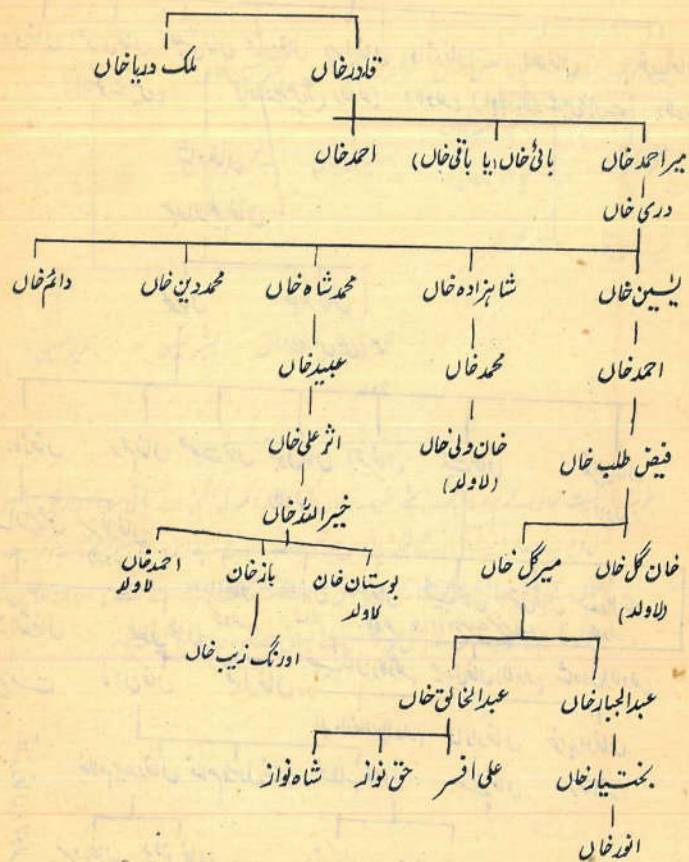 قادر خاں ملک دریا خاں
میر احمد خاں بائی خاں (یا باقی خاں) احمد خاں
دری خاں
یٰسین خاں شاہزادہ خاں محمد شاہ خاں محمد دین خاں دائم خاں
احمد خاں محمد خاں عبید خاں
فیض طلب خاں خان ولی خاں اثر علی خاں
(لاولد)
خیر اللہ خاں
خان گل خاں میر گل خاں بوستان خان باز خان احمد خاں
(لاولد) لاولد لاولد
اورنگ زیب خاں
عبدالجبار خاں عبدالخالق خاں
بختیار خاں علی افسر حق نواز شاہ نواز
انور خاں